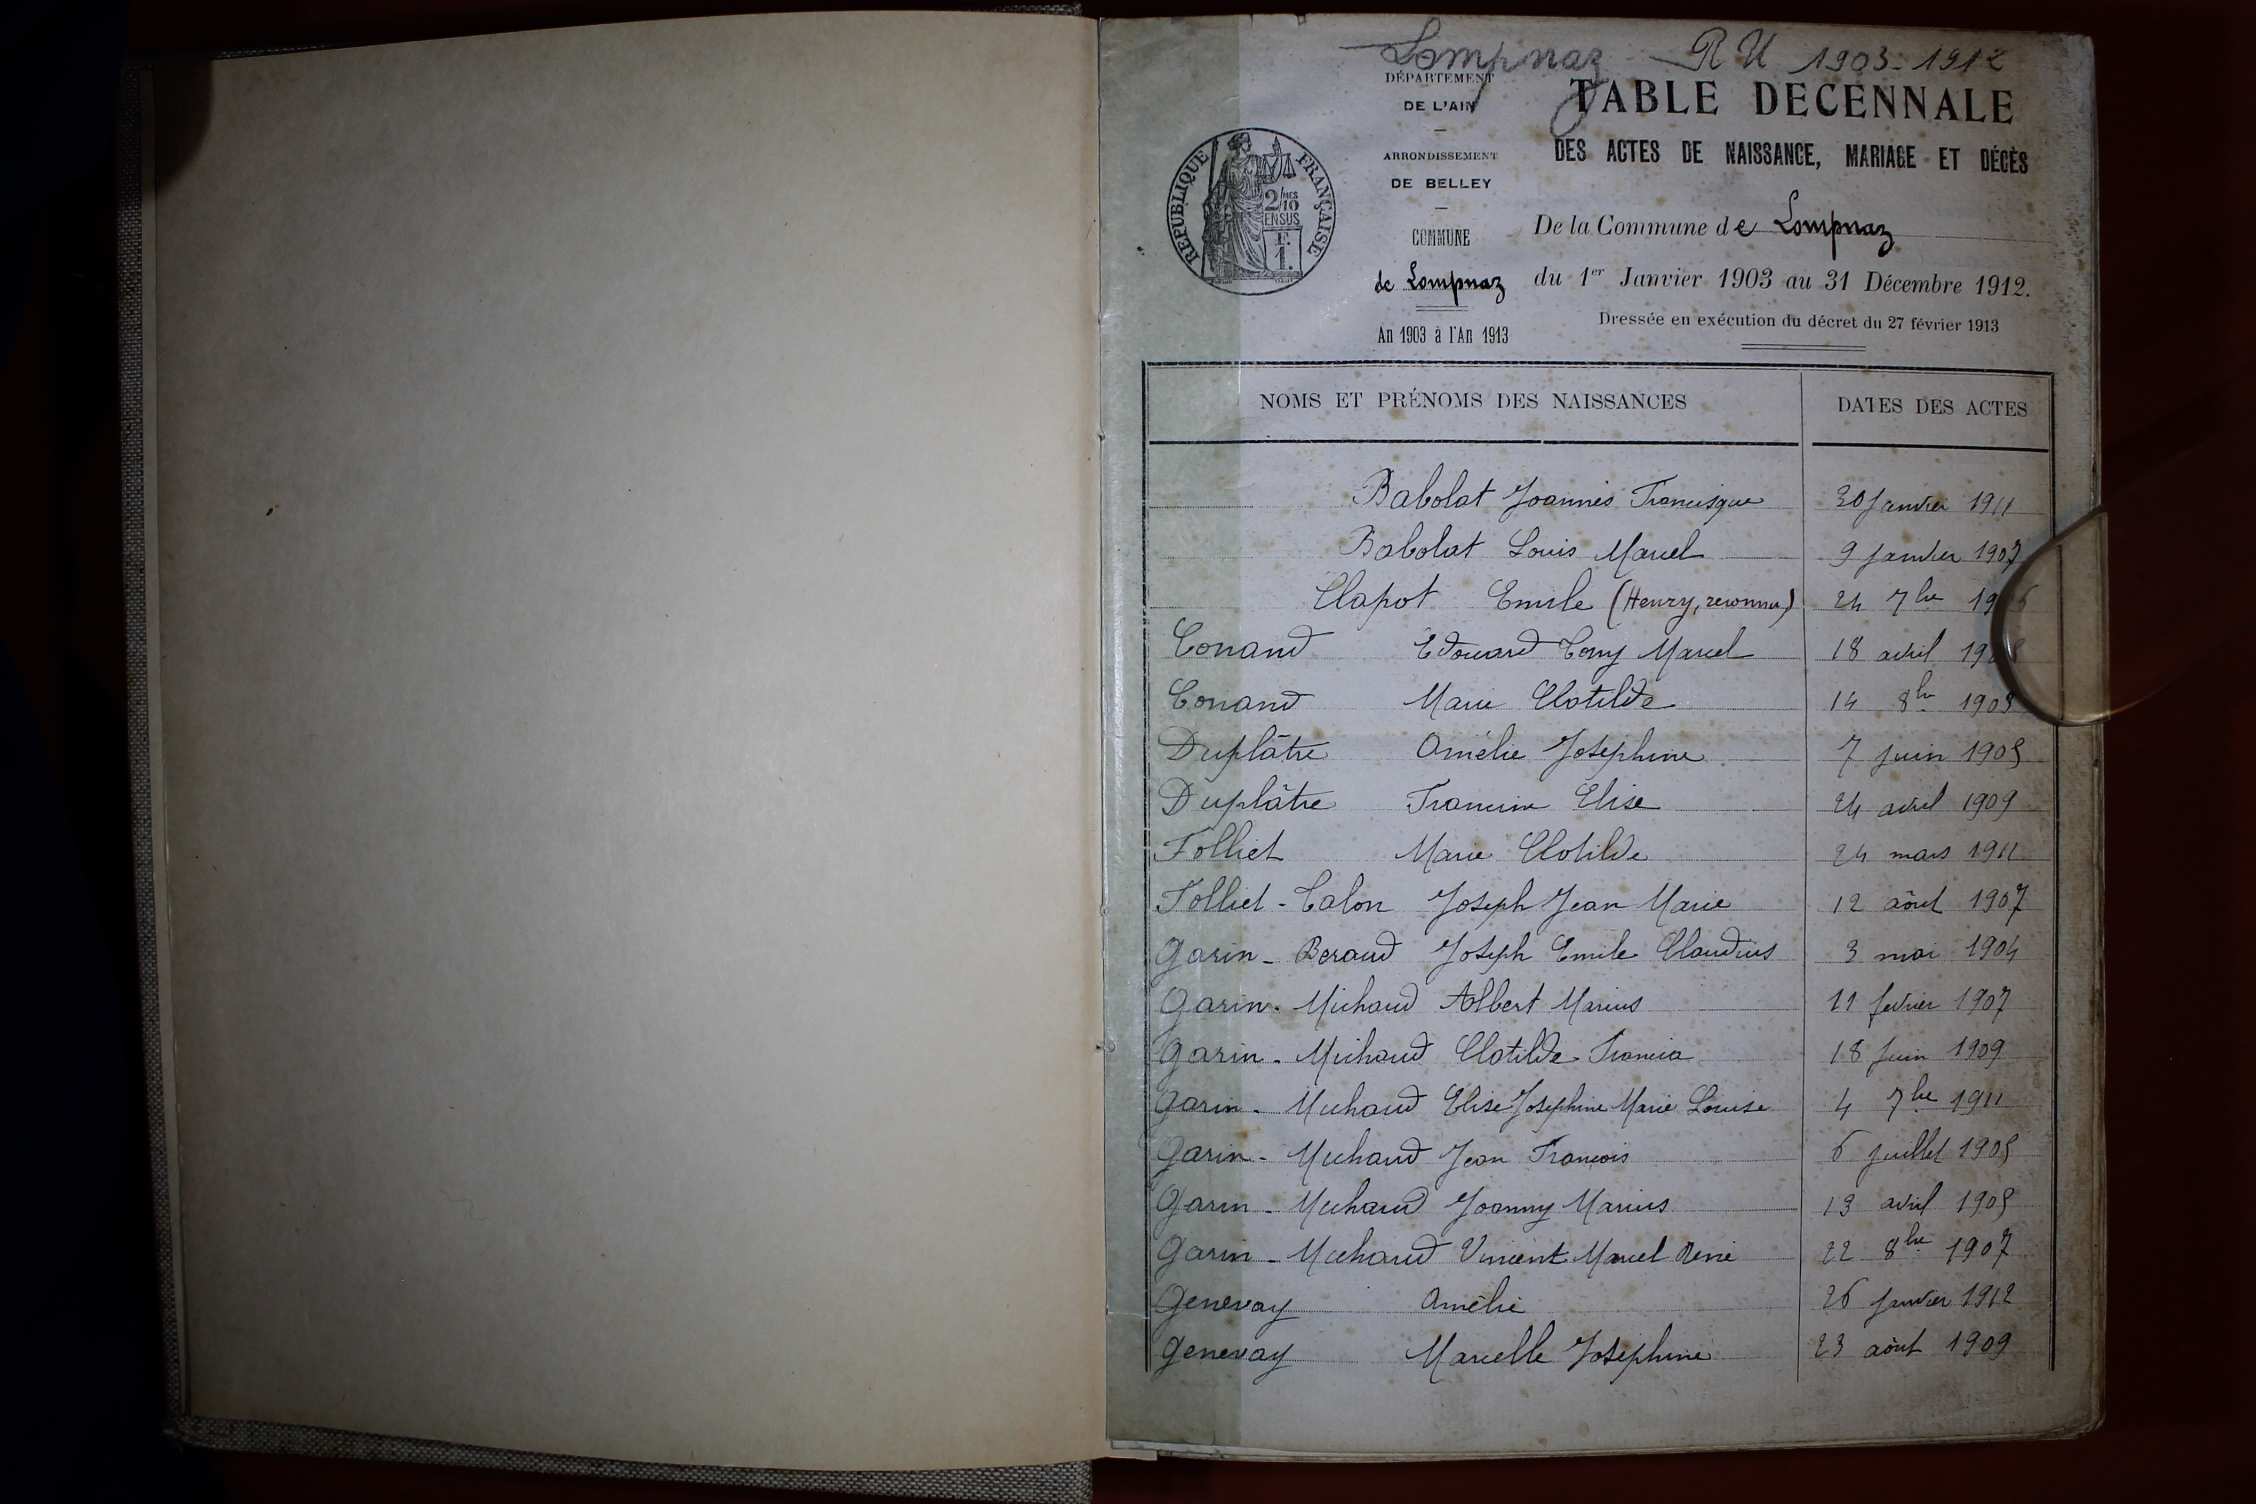 Lompnaz - RU 1903-1912
DÉPARTEMENT
DE L'AIN
ARRONDISSEMENT
DE BELLEY
COMMUNE
de Lompnaz
An 1903 à l'An 1913
RÉPUBLIQUE FRANÇAISE
2/10 MES
EN SUS
F.
1.
TABLE DECENNALE
DES ACTES DE NAISSANCE, MARIAGE ET DÉCÈS
De la Commune de Lompnaz
du 1er Janvier 1903 au 31 Décembre 1912.
Dressée en exécution du décret du 27 février 1913
NOMS ET PRÉNOMS DES NAISSANCES DATES DES ACTES
Babolat Joannès Francisque 30 Janvier 1911
Babolat Louis Marcel 9 janvier 1907
Clapot Emile (Henry, reconnu) 24 7bre
Conand Edouard Tony Marcel 18 avril
Conand Marie Clotilde 14 8bre 1908
Duplâtre Amélie Joséphine 7 juin 1905
Duplâtre Francine Elise 24 avril 1909
Folliet Marie Clotilde 24 mars 1911
Folliet-Calon Joseph Jean Marie 12 aôut 1907
Garin-Beraud Joseph Emile Claudius 3 mai 1904
Garin-Michaud Albert Marius 11 fevrier 1907
Garin-Michaud Clotilde Francia 18 Juin 1909
Garin-Michaud Elise Joséphine Marie Louise 4 7bre 1911
Garin-Michaud Jean François 6 juillet 1905
Garin-Michaud Joanny Marius 13 avril 1905
Garin-Michaud Vincent Marcel René 22 8bre 1907
Genevay Amélie 26 janvier 1912
Genevay Marcelle Joséphine 23 aôut 1909